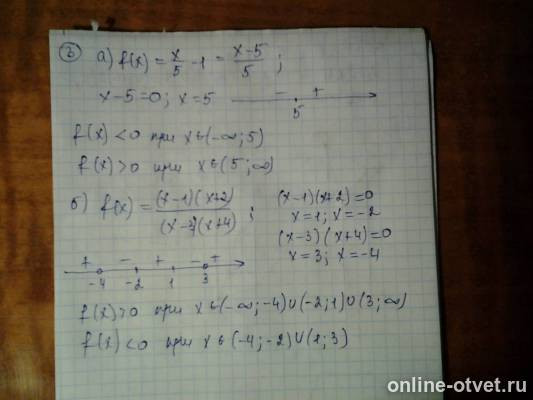 ③ а) f(x) = x/5 - 1 = (x-5)/5 ;
x-5=0; x=5
- +
5
f(x) < 0 при x∈(-∞; 5)
f(x) > 0 при x∈(5; ∞)
б) f(x) = (x-1)(x+2)/(x-3)(x+4) ;
(x-1)(x+2)=0
x=1; x=-2
(x-3)(x+4)=0
x=3; x=-4
+ - + - +
-4 -2 1 3
f(x)>0 при x∈(-∞; -4)∪(-2; 1)∪(3; ∞)
f(x)<0 при x∈(-4; -2)∪(1; 3)
online-otvet.ru